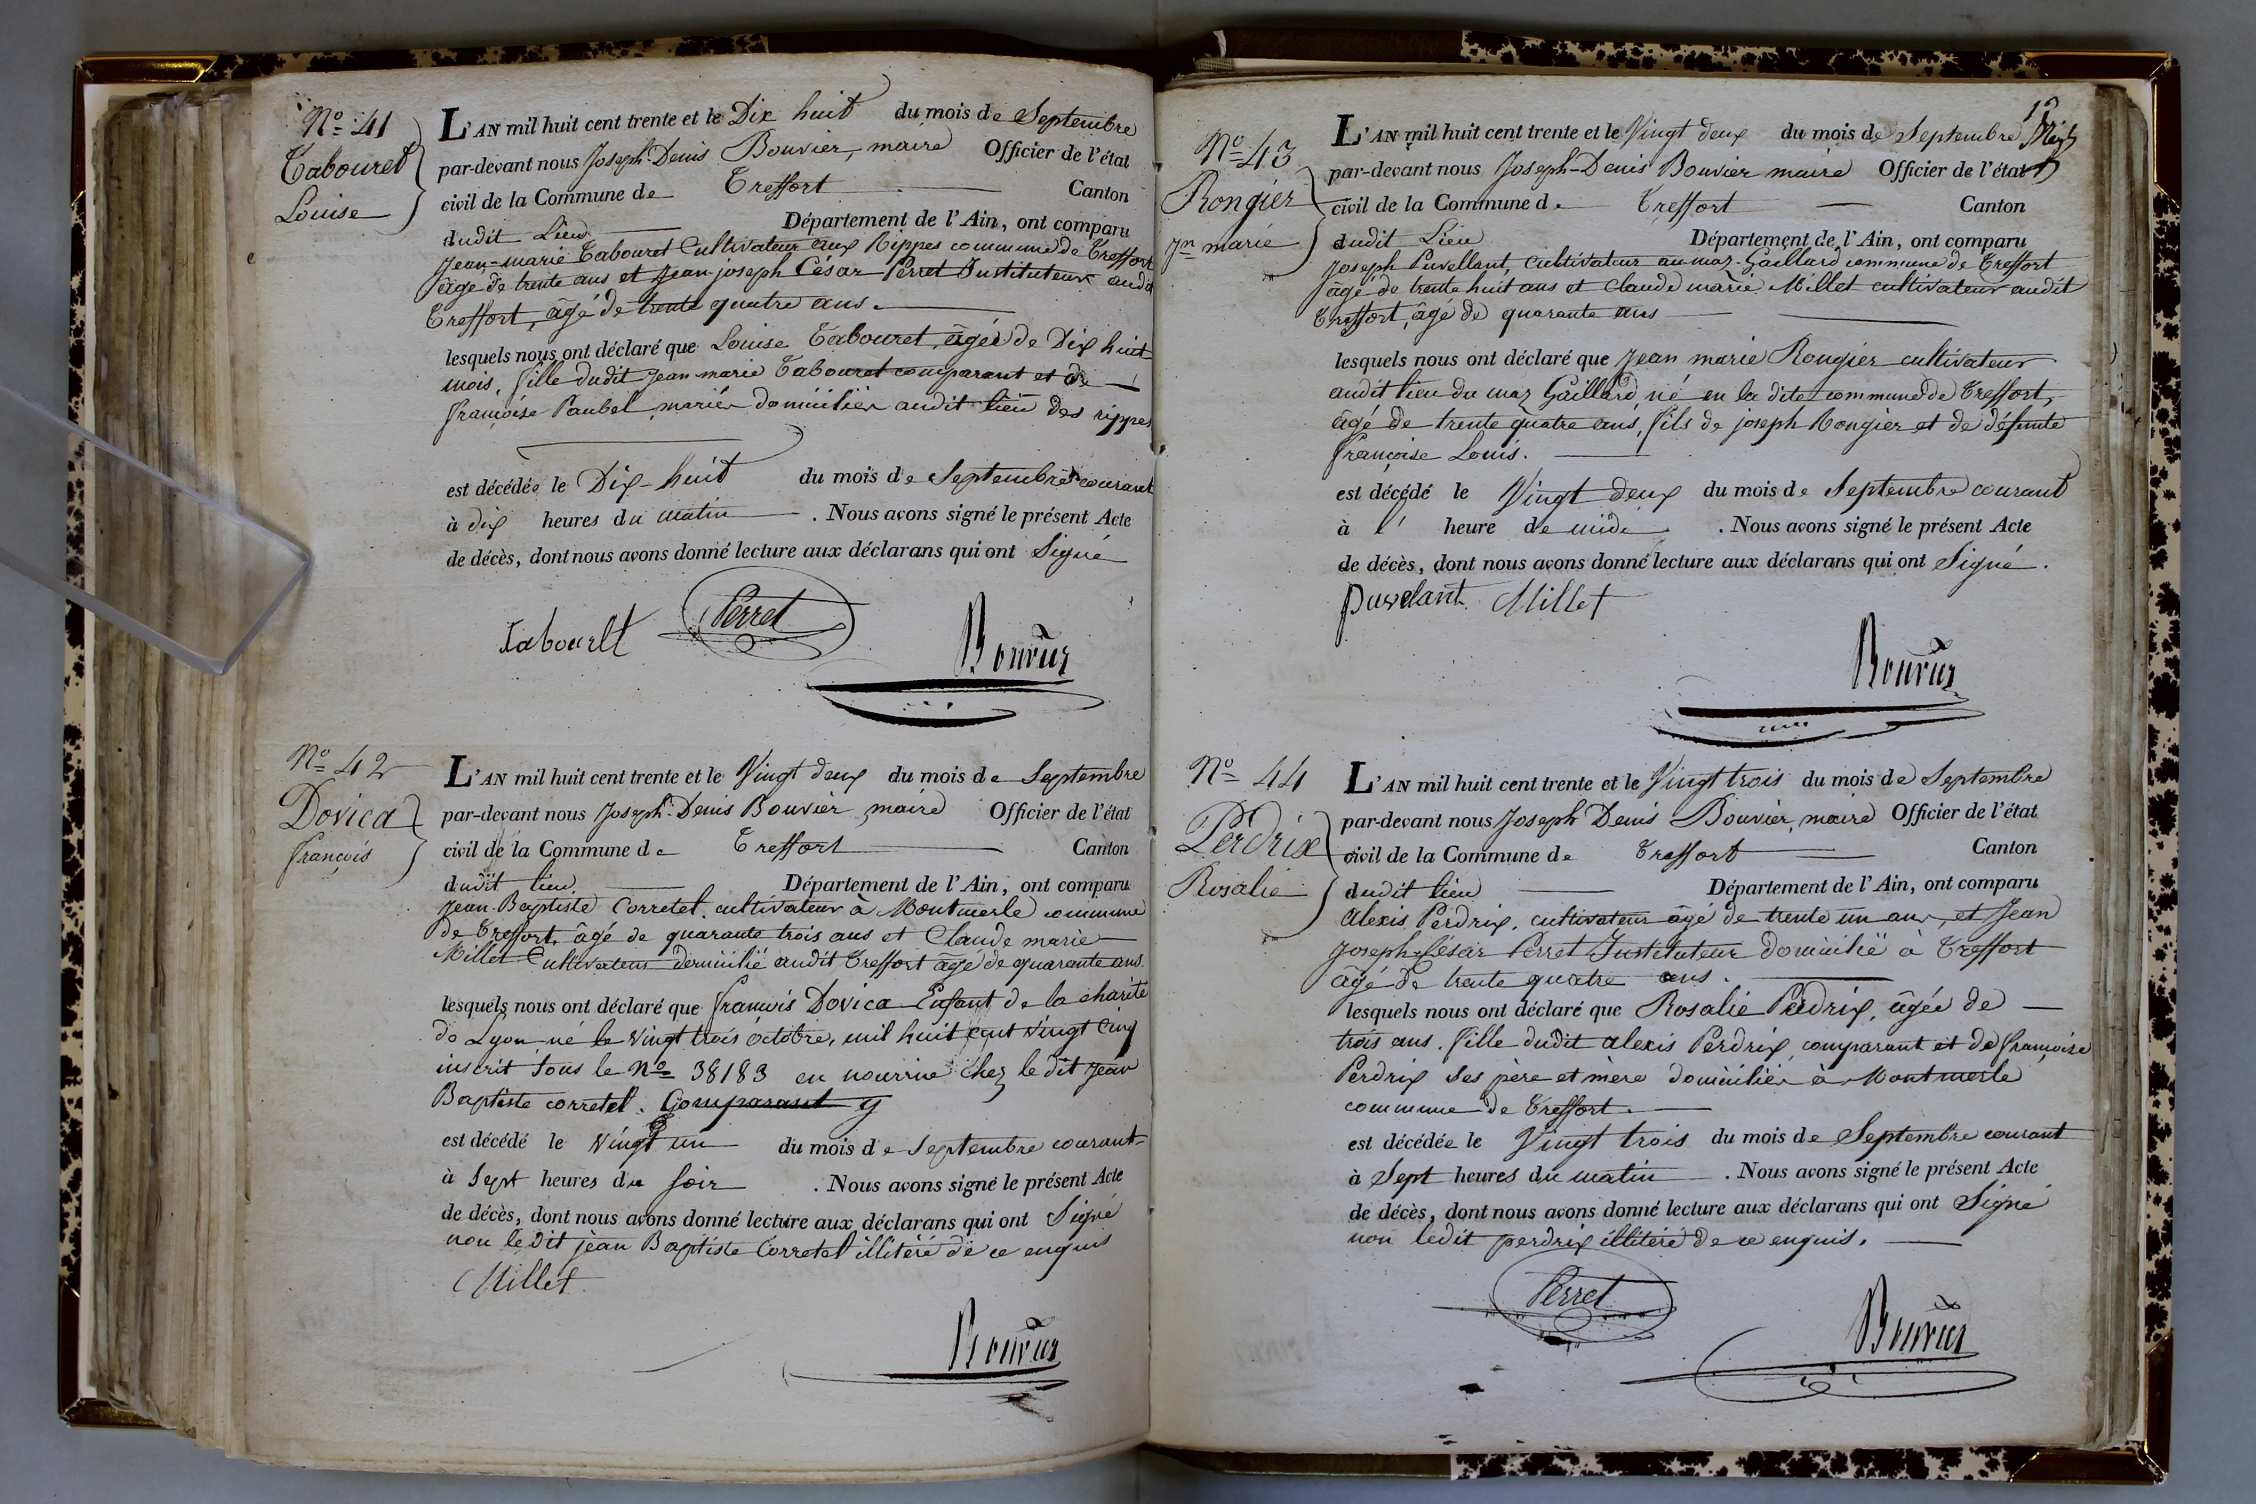 Nº 41
Tabouret
Louise
L'AN mil huit cent trente et le Dix huit du mois de Septembre
par-devant nous Joseph-Denis Bouvier, maire Officier de l'état
civil de la Commune de Treffort Canton
dudit Lieu Département de l'Ain, ont comparu
Jean-marie Tabouret Cultivateur aux Rippes commune de Treffort
âgé de trente ans et Jean-joseph César Perret Instituteur audit
Treffort, âgé de trente quatre ans.
lesquels nous ont déclaré que Louise Tabouret, âgée de Dix huit
mois, fille dudit Jean marie Tabouret comparant et de
françoise Paubel mariés domiciliés audit lieu des rippes
est décédée le Dix-huit du mois de Septembre courant
à dix heures du matin. Nous avons signé le présent Acte
de décès, dont nous avons donné lecture aux déclarans qui ont Signé
Tabouret Perret
Bouvier
Nº 42
Dovica
françois
L'AN mil huit cent trente et le Vingt deux du mois de Septembre
par-devant nous Joseph-Denis Bouvier, maire Officier de l'état
civil de la Commune de Treffort Canton
dudit lieu Département de l'Ain, ont comparu
Jean-Baptiste Corretel, cultivateur à Montmerle commune
de Treffort, âgé de quarante trois ans et Claude marie
Millet Cultivateur domicilié audit Treffort âgé de quarante ans.
lesquels nous ont déclaré que françois Dovica Enfant de la charité
de Lyon né le vingt trois octobre, mil huit cent vingt cinq
inscrit sous le Nº 38183 en nourrice chez le dit Jean
Baptiste corretel. Comparant
est décédé le vingt un du mois de Septembre courant
à Sept heures du soir. Nous avons signé le présent Acte
de décès, dont nous avons donné lecture aux déclarans qui ont Signé
non le dit jean Baptiste Corretel illitéré de ce enquis
Millet
Bouvier
Nº 43
Rongier
Jn marie
L'AN mil huit cent trente et le Vingt deux du mois de Septembre
par-devant nous Joseph-Denis Bouvier maire Officier de l'état
civil de la Commune de Treffort Canton
dudit Lieu Département de l'Ain, ont comparu
Joseph Puvellant, cultivateur au maz-Gaillard commune de Treffort
âgé de trente huit ans et Claude marie Millet cultivateur audit
Treffort, âgé de quarante ans
lesquels nous ont déclaré que Jean marie Rongier cultivateur
audit lieu du maz Gaillard né en la dite commune de Treffort,
âgé de trente quatre ans, fils de joseph Rongier et de défunte
françoise Louis.
est décédé le Vingt deux du mois de Septembre courant
à l' heure de midi. Nous avons signé le présent Acte
de décès, dont nous avons donné lecture aux déclarans qui ont Signé.
Puvelant Millet
Bouvier
Nº 44
Perdrix
Rosalie
L'AN mil huit cent trente et le Vingt trois du mois de Septembre
par-devant nous Joseph Denis Bouvier, maire Officier de l'état
civil de la Commune de Treffort Canton
dudit lieu Département de l'Ain, ont comparu
Alexis Perdrix, cultivateur âgé de trente un ans, et Jean
Joseph-César Perret Instituteur domicilié à Treffort
âgé de trente quatre ans.
lesquels nous ont déclaré que Rosalie Perdrix, âgée de
trois ans. fille dudit alexis Perdrix, comparant et de françoise
Perdrix ses père et mère domiciliés à Montmerle
commune de Treffort.
est décédée le Vingt trois du mois de Septembre courant
à Sept heures du matin. Nous avons signé le présent Acte
de décès, dont nous avons donné lecture aux déclarans qui ont Signé
non ledit perdrix illitéré de ce enquis.
Perret
Bouvier